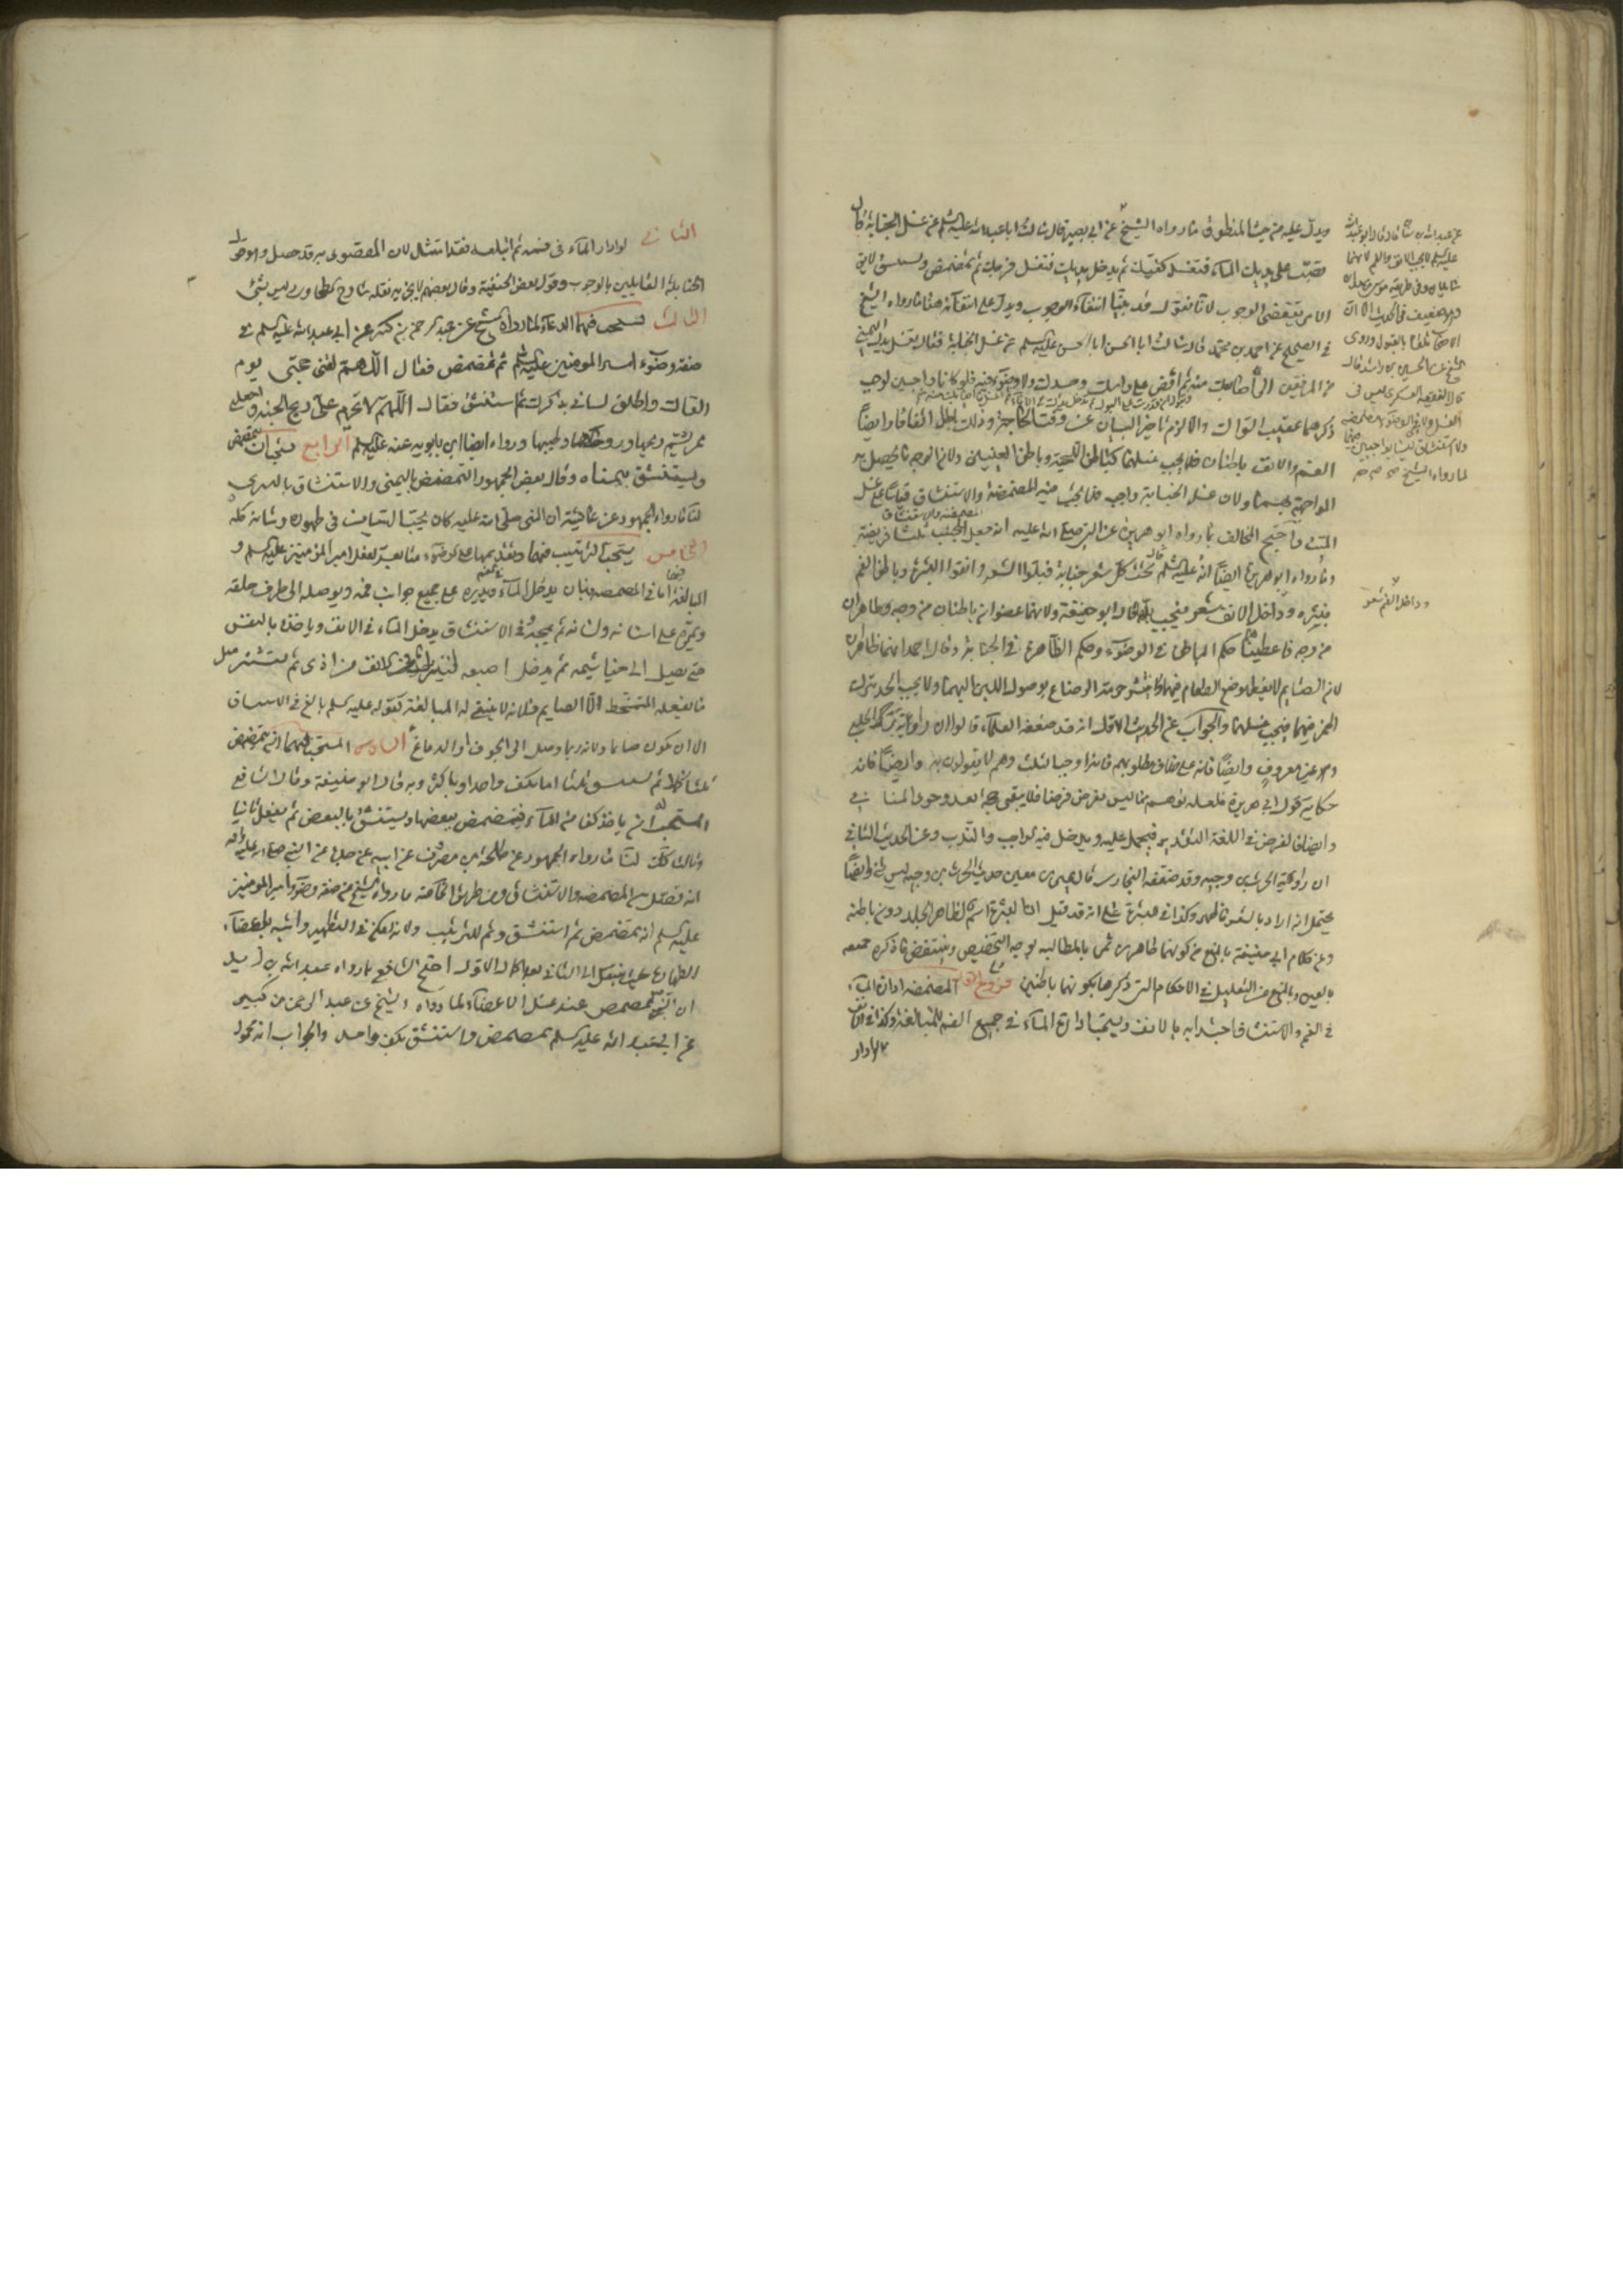 ويدل عليه من حيث المنطوق ما رواه الشيخ عن ابي بصير قال سالت ابا عبد الله عليه السلم عن غسل الجنابة قال
تصب على يديك الماء فتغسل كفيك ثم تدخل يدك فتغسل فرجك ثم تمضمض وتستنشق لايق
الامر يقتضى الوجوب لانا نقول قد بينا انتفاء الوجوب ويدل على انتفائه هنا ما رواه الشيخ
في الصحيح عن احمد بن محمد قال سالت ابا الحسن عليه السلم عن غسل الجنابة فقال تغسل يدك اليمنى
من المرفقين الى اصابعك ثم افض على راسك وجسدك ولا وضوء فيه فلو كانا واجبين لوجب
ذكرهما عقيب السؤال والا لزم تاخير البيان عن وقت الحاجة وذلك باطل اتفاقا وايضا
الفم والانف باطنان فلا يجب غسلهما كباطن اللحية وباطن العينين ولان الوجه ما يحصل به
المواجهة ولان غسل الجنابة واجب فلا يجب فيه المضمضة والاستنشاق قياسا على غسل
الميت واحتج المخالف بما رواه ابو هريرة عن النبي صلى الله عليه انه جعل المضمضة والاستنشاق للجنب ثلثا فريضة
وما رواه ابو هريرة ايضا انه عليه السلم قال تحت كل شعر جنابة فبلوا الشعر وانقوا البشرة وباطن الفم
بشرة وداخل الانف شعر فيجب قال ابو حنيفة ولانهما عضوان باطنان من وجه وظاهران
من وجه فاعطيناهما حكم الباطن في الوضوء وحكم الظاهر في الجنابة وقال احمد انهما ظاهران
لان الصايم لا يفطر بوضع الطعام فيهما ولا ينشر حرمة الرضاع بوصول اللبن اليهما ولا يجب الحد بترك
الخمر فيهما فيجب غسلهما والجواب عن الحديث الاول انه قد ضعفه العلماء قالوا ان راويه بركة الحلبي
وهو غير معروف وايضا فانه على خلاف مطلوبهم فانه اوجب الثلث وهم لا يقولون به وايضا فانه
حكاية قول ابي هريرة فلعله توهم ما ليس بفرض فرضا فلا يبقى حجة بعد وجود المنافي
وايضا فالفرض في اللغة التقدير فيحمل عليه ويدخل فيه الواجب والندب وعن الحديث الثاني
ان راويه الحارث بن وجيه وقد ضعفه البخاري قال يحيى بن معين حديث الحارث بن وجيه ليس بشئ وايضا
يحتمل انه اراد بالشعر ما ظهر وكذا في البشرة على انه قد قيل ان البشرة اسم لظاهر الجلد دون باطنه
وعن كلام ابي حنيفة بالمنع من كونهما ظاهرين ثم بالمطالبة بوجه التخصيص وينتقض ما ذكره جميعه
بالعين وبالمنع من التعليل في الاحكام التي ذكرها بكونهما باطنين فروع الاول المضمضة ادارة الماء
في الفم والاستنشاق اجتذابه بالانف ويستحب ادارة الماء في جميع الفم للمبالغة وكذا في الانف
لو ادار
عن عبد الله بن سنان قال قال ابو عبد الله
عليه السلم لا يجنب الانف والفم لانهما
سايلان وفي طريقه موسى بن سعدان
وهو ضعيف في الحديث الا ان
الاصحاب تلقوا بالقبول وروى
الشيخ عن الحسين بن راشد قال
قال الفقيه العسكري ليس في
الغسل ولا في الوضوء مضمضة
ولا استنشاق
لما رواه الشيخ
وداخل الفم شعر
الثاني لو ادار الماء في فمه ثم ابتلعه فقد امتثل لان المقصود به قد حصل وهو قول
الحنابلة القايلين بالوجوب وقول بعض الحنفية وقال بعضهم لا يجزيه نقله شارح الطحاوي وليس بشئ
الثالث يستحب فيهما الدعاء لما رواه الشيخ عن عبد الرحمن بن كثير عن ابي عبد الله عليه السلم في
صفة وضوء امير المومنين عليه السلم ثم تمضمض فقال اللهم لقنى حجتى يوم
القاك واطلق لسانى بذكرك ثم استنشق فقال اللهم لا تحرم على ريح الجنة واجعلني
ممن يشم ريحها وروحها وطيبها ورواه ايضا ابن بابويه عنه عليه السلم الرابع يستحب ان يتمضمض
ويستنشق بيمناه وقال بعض الجمهور التمضمض باليمنى والاستنشاق باليسرى
لنا ما رواه الجمهور عن عايشة ان النبي صلى الله عليه كان يحب التيامن في طهوره وشانه كله
الخامس يستحب الترتيب فيهما وتقديمهما على الوضوء متابعة لفعل امير المؤمنين عليه السلم و
المبالغة فيهما اما في المضمضة فبان يدخل الماء في الفم ويديره على جميع جوانب فمه ويوصله الى طرف حلقه
ويمره على اسنانه ولثاته ثم يمجه وفي الاستنشاق يدخل الماء في الانف وياخذه بالنفس
حتى يصل الى خياشيمه ثم يدخل اصبعه فيزيل ما في الانف من اذى ثم يستنثر مثل
ما يفعله المتمخط الا الصايم فلانه لا ينبغى له المبالغة لقوله عليه السلم بالغ في الاستنشاق
الا ان تكون صايما ولانه ربما وصل الى الجوف او الدماغ السادس المستحب فيهما ان يتمضمض
ثلثا كاملا ثم يستنشق ثلثا اما بكف واحد او باكثر وبه قال ابو حنيفة وقال الشافعي
المستحب له ان ياخذ كفا من الماء فيتمضمض ببعضها ويستنشق بالبعض ثم يفعل ثانيا
وثالثا كذلك لنا ما رواه الجمهور عن طلحة بن مصرف عن ابيه عن جده عن النبي صلى الله عليه واله
انه فصل بين المضمضة والاستنشاق ومن طريق الخاصة ما رواه الشيخ من صفة وضوء امير المومنين
عليه السلم انه تمضمض ثم استنشق وثم للترتيب ولانه امكن في التطهير واشبه باعضاء
الطهارة حيث ينتقل الى الثاني بعد اكمال الاول احتج الشافعي بما رواه عبد الله بن زيد
ان النبي تمضمض عند غسل الاعضاء ولما رواه الشيخ عن عبد الرحمن بن كثير
عن ابي عبد الله عليه السلم تمضمض واستنشق بكف واحد والجواب انه محمول